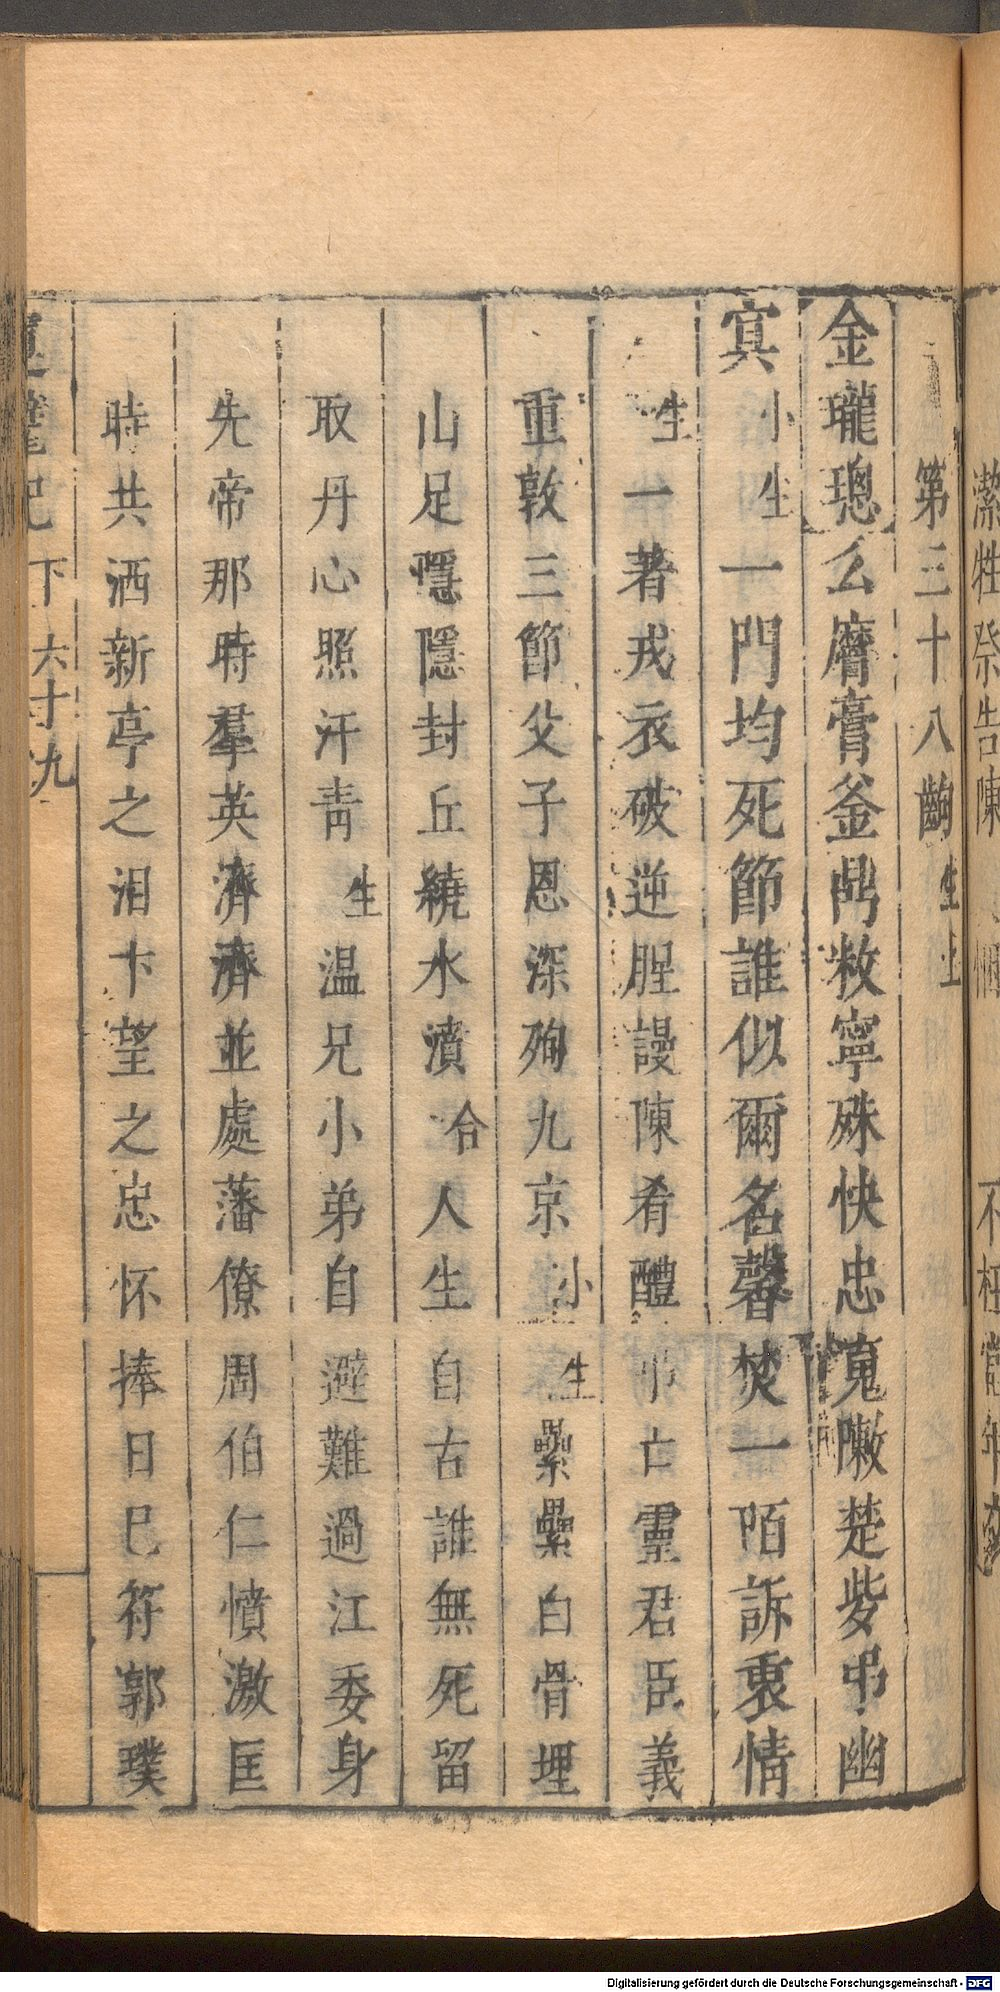 潔牲祭告陳
不枉當年
第三十八齣 生上
金瓏璁 么麿膏釜鬲敉寧殊快忠蒐隒楚些弔幽
冥 小生 一門均死節誰似爾名馨焚一陌訴衷情
生 一著戎衣破逆腥謾陳肴醴弔亡靈君臣義
重敦三節父子恩深殉九京 小生 纍纍白骨埋
山足隱隱封丘繞水濆 合 人生自古誰無死留
取丹心照汗靑 生 温兄小弟自避難過江委身
先帝那時羣英濟濟並處藩僚周伯仁憤激匡
時共洒新亭之泪卞望之忠怀捧日巳符郭璞
記 下 六十九
Digitalisierung gefördert durch die Deutsche Forschungsgemeinschaft - DFG